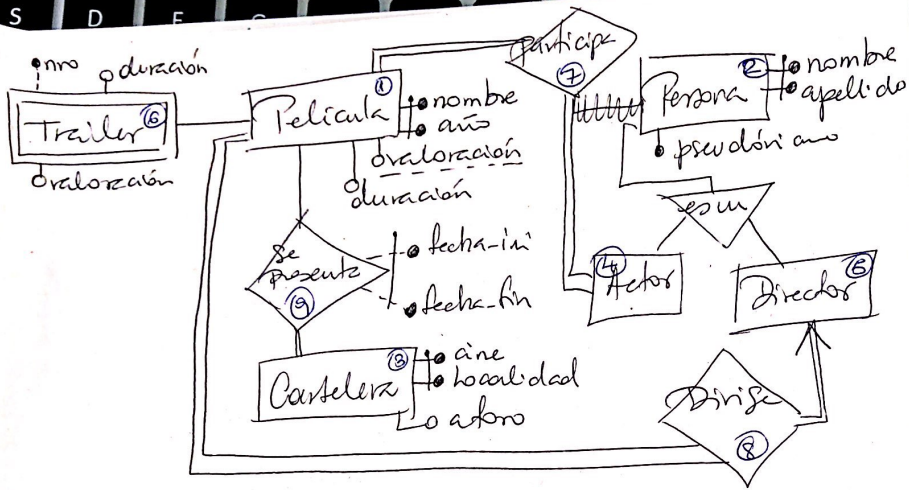 S D F
nro
duración
Trailer 6
valoración
Película 1
nombre
año
valoración
duración
participa
7
Persona 2
nombre
apellido
pseudónimo
es un
4
Actor
Director 5
se
presenta
9
fecha-ini
fecha-fin
Cartelera 3
cine
Localidad
aforo
Dirige
8